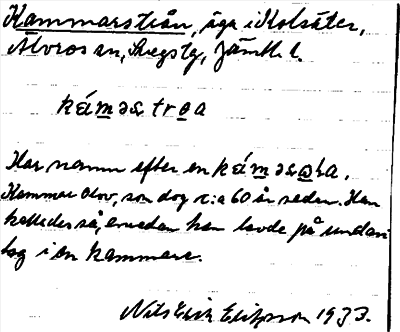 Kammarstrån, äga i Kolsäter,
Älvros sn, Svegs tg, Jämtl. l.
kám̲ɘstro̲a
Har namn efter en
Kammar Olov, som dog c:a 60 år sedan. Han
kallades så, emedan han bodde på undan
tag i en kammare.
Nils Erik Eriksson 1933.